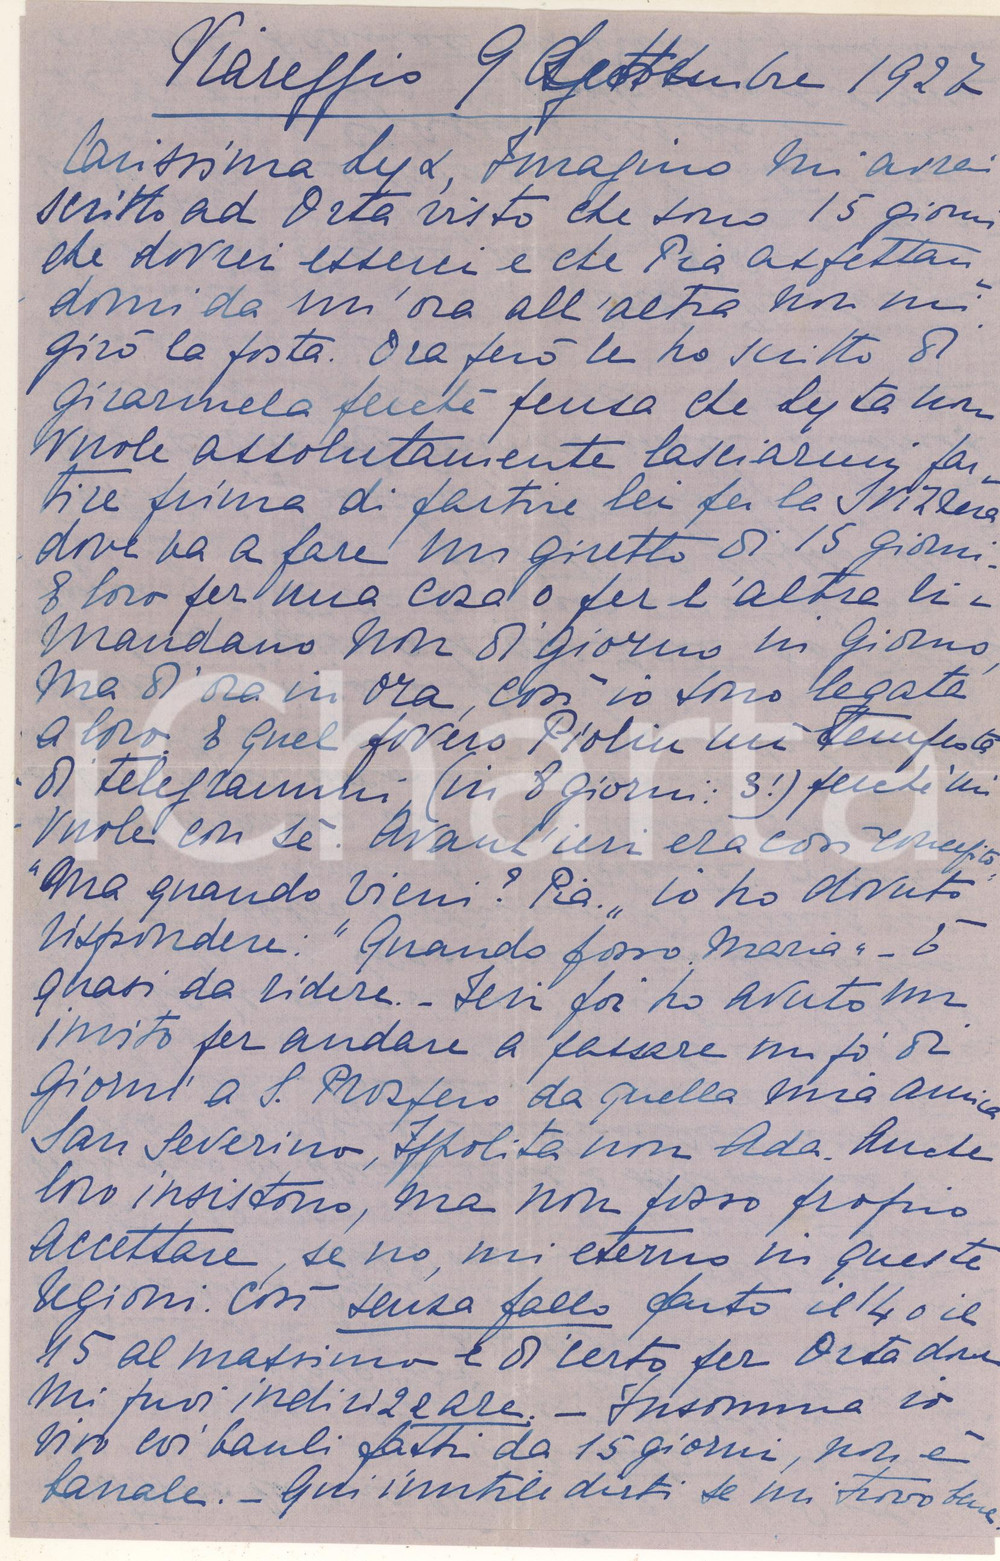 Viareggio 9 Settembre 1927
Carissima Lyx, Imagino mi avrai
scritto ad Orta visto che sono 15 giorni
che dovrei esserci e che Pia aspettan-
domi da un'ora all'altra non mi
girò la posta. Ora però le ho scritto di
girarmela perchè pensa che Lyta non
vuole assolutamente lasciarmi par-
tire prima di partire lei per la Svizzera
dove va a fare un giretto di 15 giorni.
E loro per una cosa o per l'altra ri-
mandano non di giorno in giorno,
ma di ora in ora, così io sono legata
a loro. E quel povero Piolin mi tempesta
di telegrammi (in 8 giorni: 3!) perchè mi
vuole con sè. Avant'ieri era così concepito
"Ma quando vieni? Pia." io ho dovuto
rispondere: "Quando posso, Maria" - È
quasi da ridere. - Ieri poi ho avuto un
invito per andare a passare un pò di
giorni a S. Prospero da quella mia amica
San Severino, Ippolita non Ada. Anche
loro insistono, ma non posso proprio
accettare, se no, mi eterno in queste
regioni. Così senza fallo parto il 14 o il
15 al massimo e di certo per Orta dove
mi puoi indirizzare. - Insomma io
vivo coi bauli fatti da 15 giorni, non è
banale. - Qui inutile dirti se mi trovo bene,
iCharta